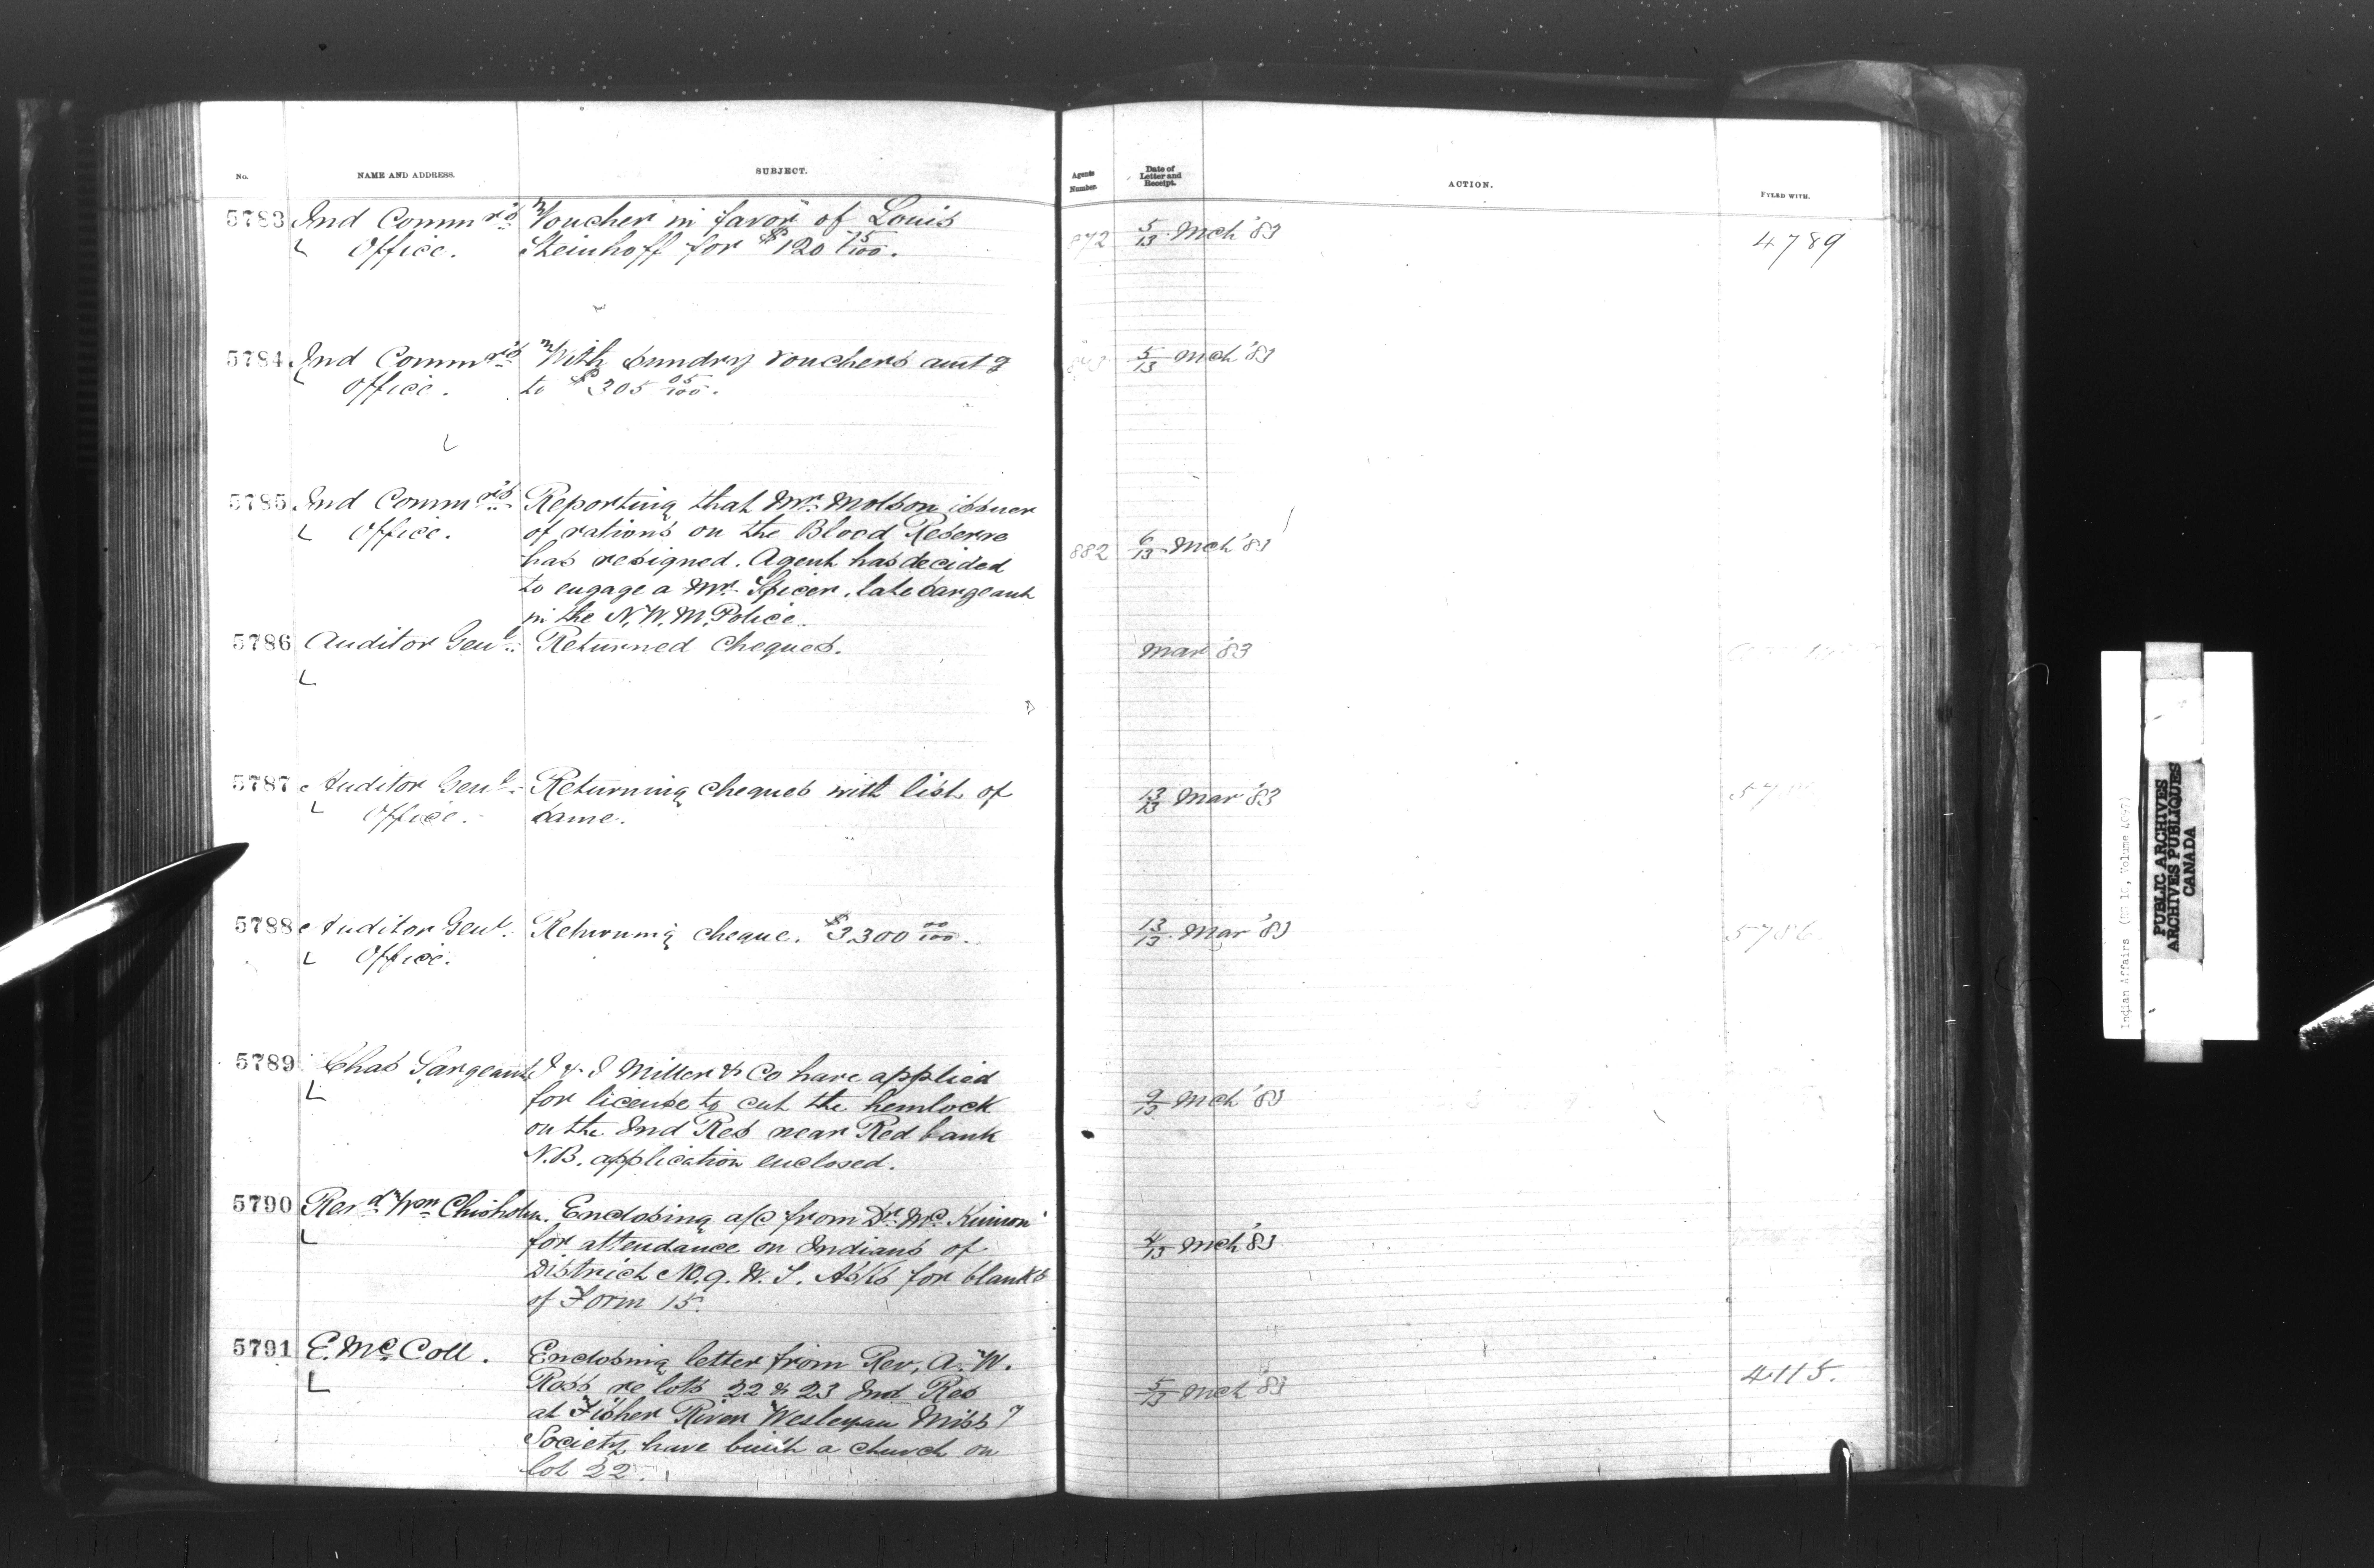 No. NAME AND ADDRESS. SUBJECT. Agents Number. Date of Letter and Receipt. ACTION. FYLED WITH.
5783 Ind Commr's Voucher in favor of Louis
Office. Steinhoff for $120 75/100. 872 5/13 Mch '83 4789
5784 Ind Commr's With sundry vouchers amt g
Office. to $305 05/100. 5/13 Mch '83
5785 Ind Commr's Reporting that Mr. Molson issuer
Office. of rations on the Blood Reserve
has resigned. Agent has decided 882 6/13 Mch '83
to engage a Mr. Spicer, late sargeant
in the N.W.M. Police.
5786 Auditor Genl. Returned Cheques. Mar '83
5787 Auditor Genl. Returning cheques with list of 13/13 Mar '83
Office. same.
5788 Auditor Genl. Returning cheque. $3,300 00/100. 13/13 Mar '83 5786
Office.
5789 Chas Sargeant J & J Miller & Co have applied
for license to cut the hemlock 9/13 Mch '83
on the Ind Res near Red bank
N.B. application enclosed.
5790 Revd Wm Chisholm. Enclosing a/c from Dr. Mc Kinnon
for attendance on Indians of 4/13 Mch '83
District No. 9. N.S. Asks for blanks
of Form 15.
5791 E. Mc Coll. Enclosing letter from Rev. A. W.
Ross re lots 22 & 23 Ind Res 5/13 Mch '83 4115.
at Fisher River Wesleyan Missy
Society have built a church on
lot 22.
Indian Affairs (RG 10, Volume
PUBLIC ARCHIVES
ARCHIVES PUBLIQUES
CANADA